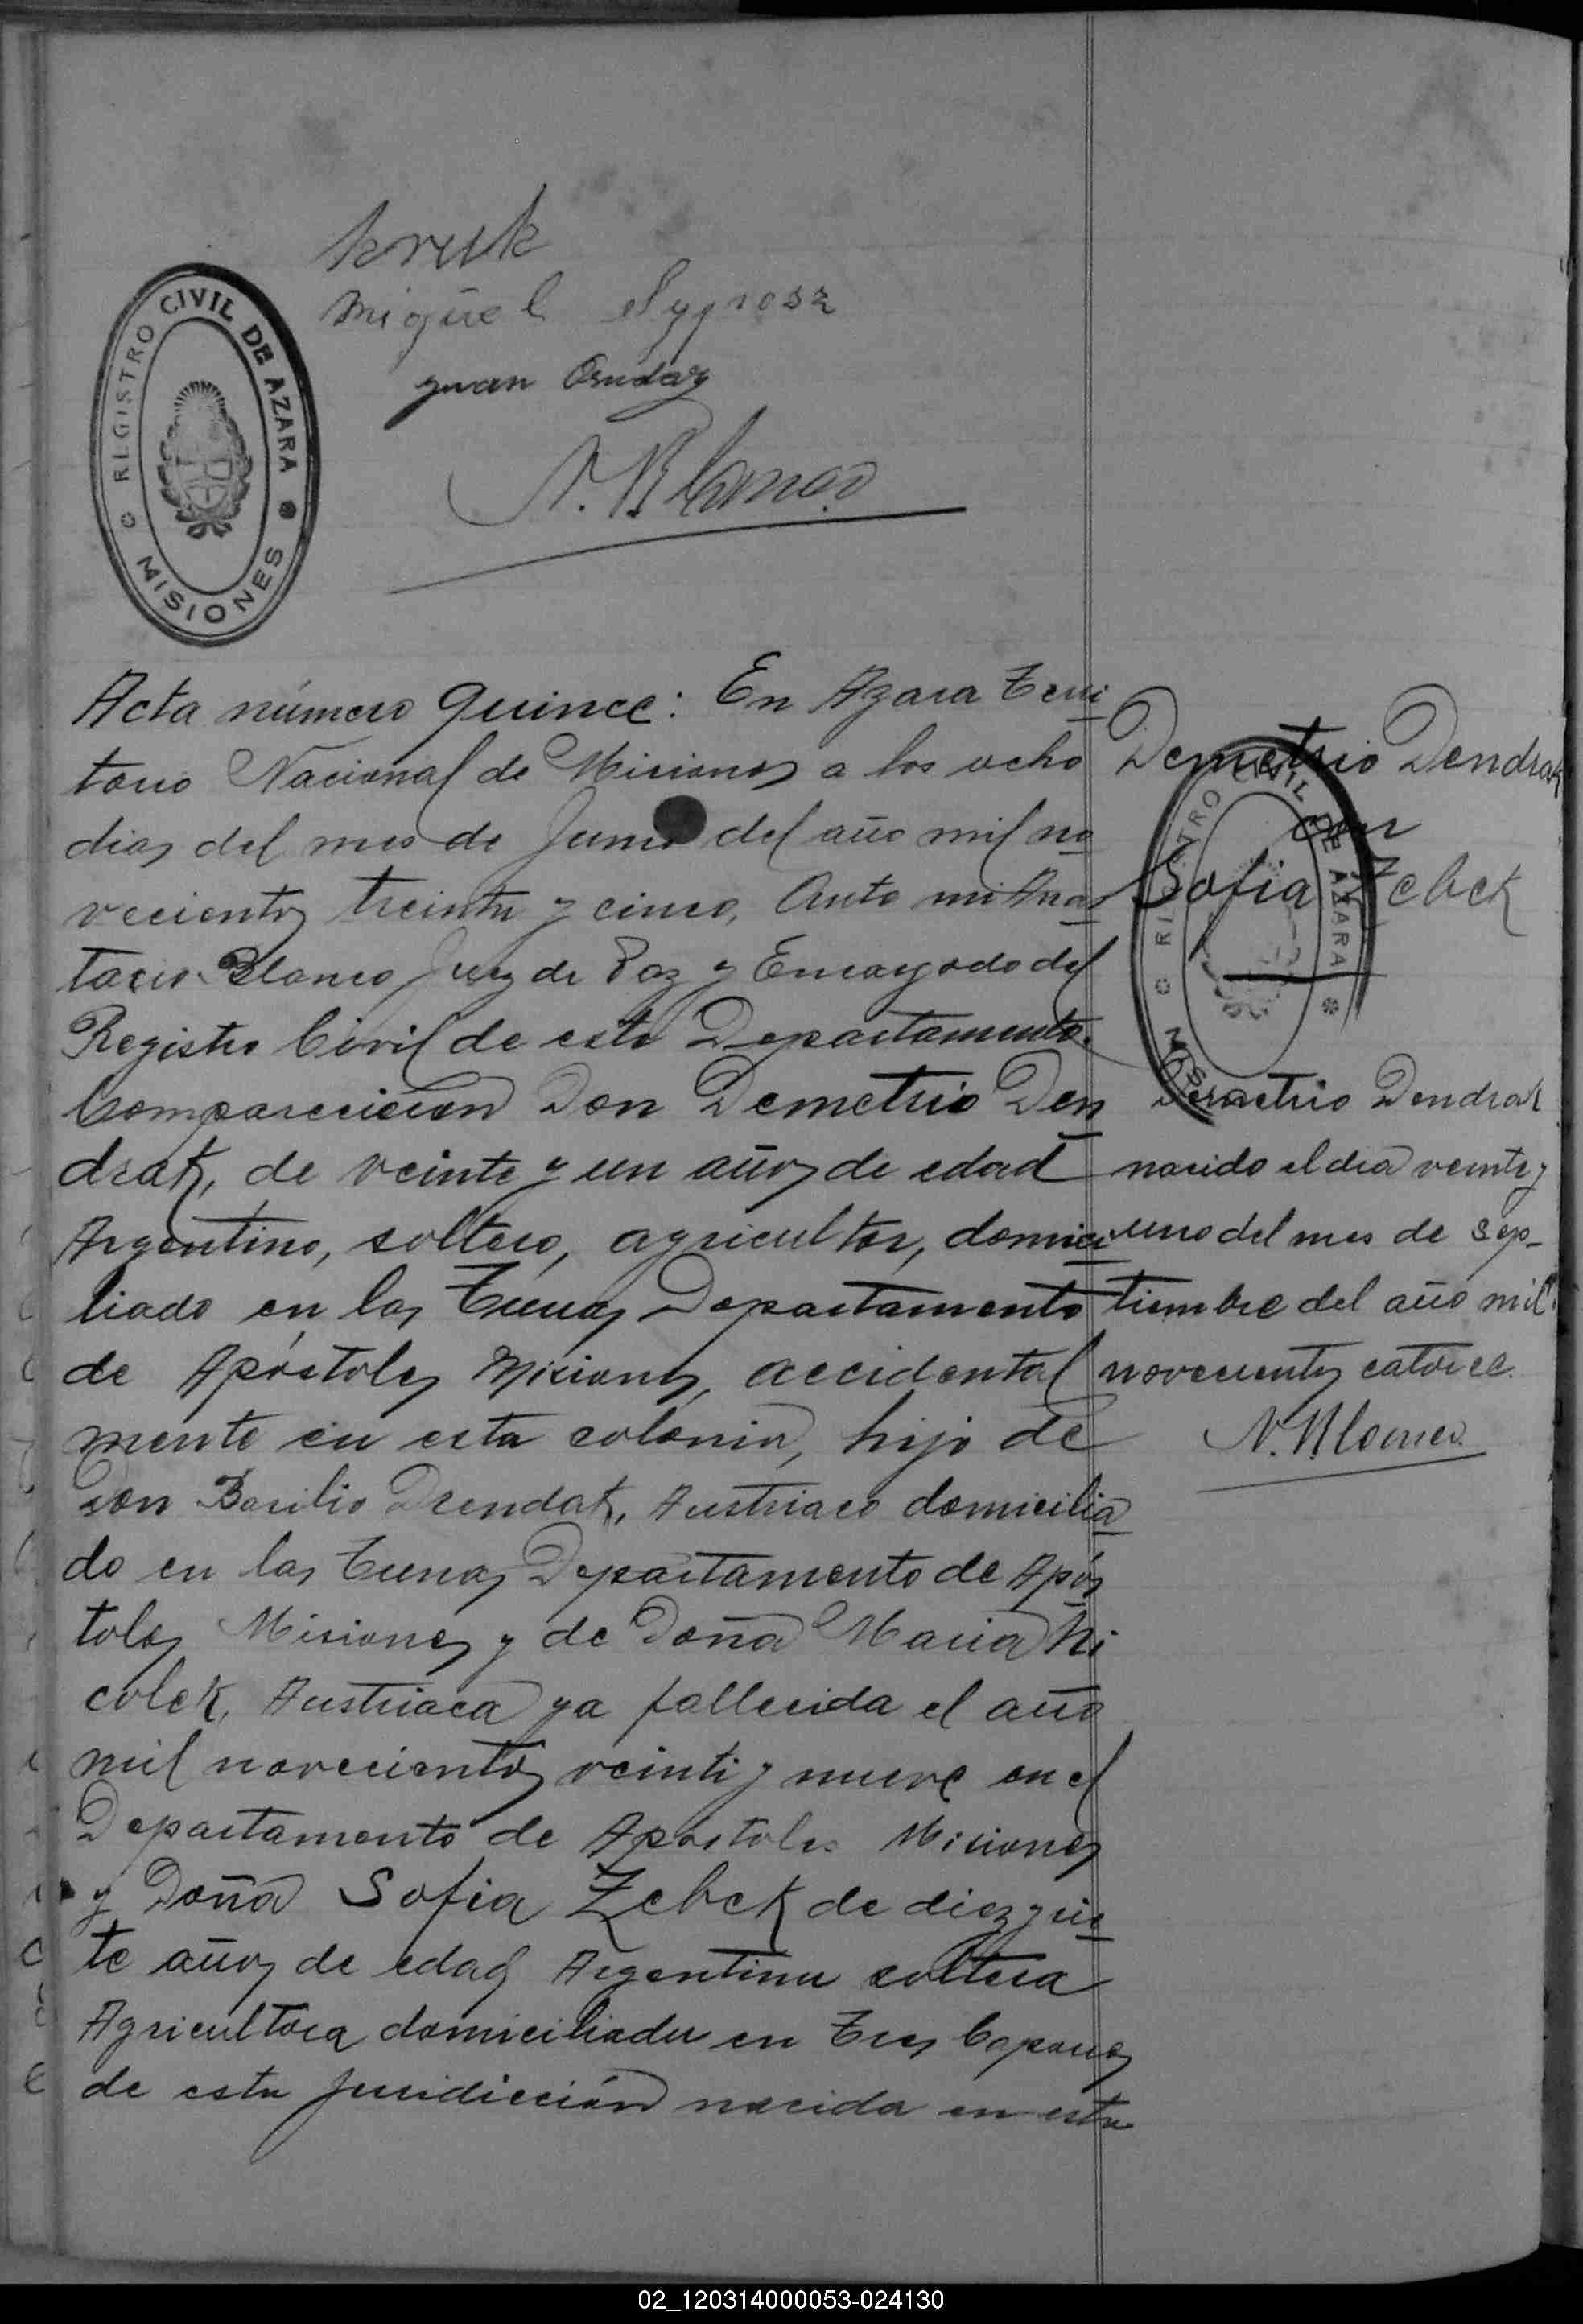 kruk
Miguel
Juan
N. Blanco
REGISTRO CIVIL DE AZARA
MISIONES
Acta número quince: En Azara Terri
torio Nacional de Misiones a los ocho
dias del mes de Junio del año mil no
vecientos treinta y cinco, Ante mi Anas
tacio Blanco Juez de Paz y Encargado del
Registro Civil de este Departamento.
Comparecieron Don Demetrio Den
drak, de veinte y un años de edad
Argentino, soltero, agricultor, domici
liado en las Tunas Departamento
de Apóstoles Misiones, accidental
mente en esta colonia, hijo de
don Basilio Drendak, Austriaco domicilia
do en las Tunas Departamento de Após
toles Misiones y de Doña Maria Ni
colek, Austriaca ya fallecida el año
mil novecientos veinti y nueve en el
Departamento de Apostoles Misiones
y Doña Sofia Zebek de diez y sie
te años de edad Argentina soltera
Agricultora domiciliada en Tres Capones
de esta juridicción nacida en esta
Demetrio Dendrak
con
Sofia Zebek
REGISTRO CIVIL DE AZARA
Demetrio Dendrak
nacido el dia veinte y
uno del mes de Sep-
tiembre del año mil
novecientos catorce.
N. Blanco.
02_120314000053-024130